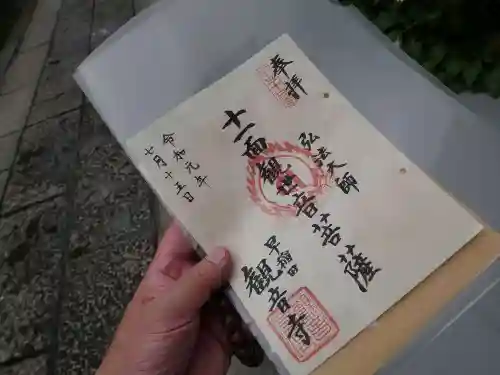 奉拝
弘法大師
十一面観音菩薩
早稲田
観音寺
令和元年
七月十五日